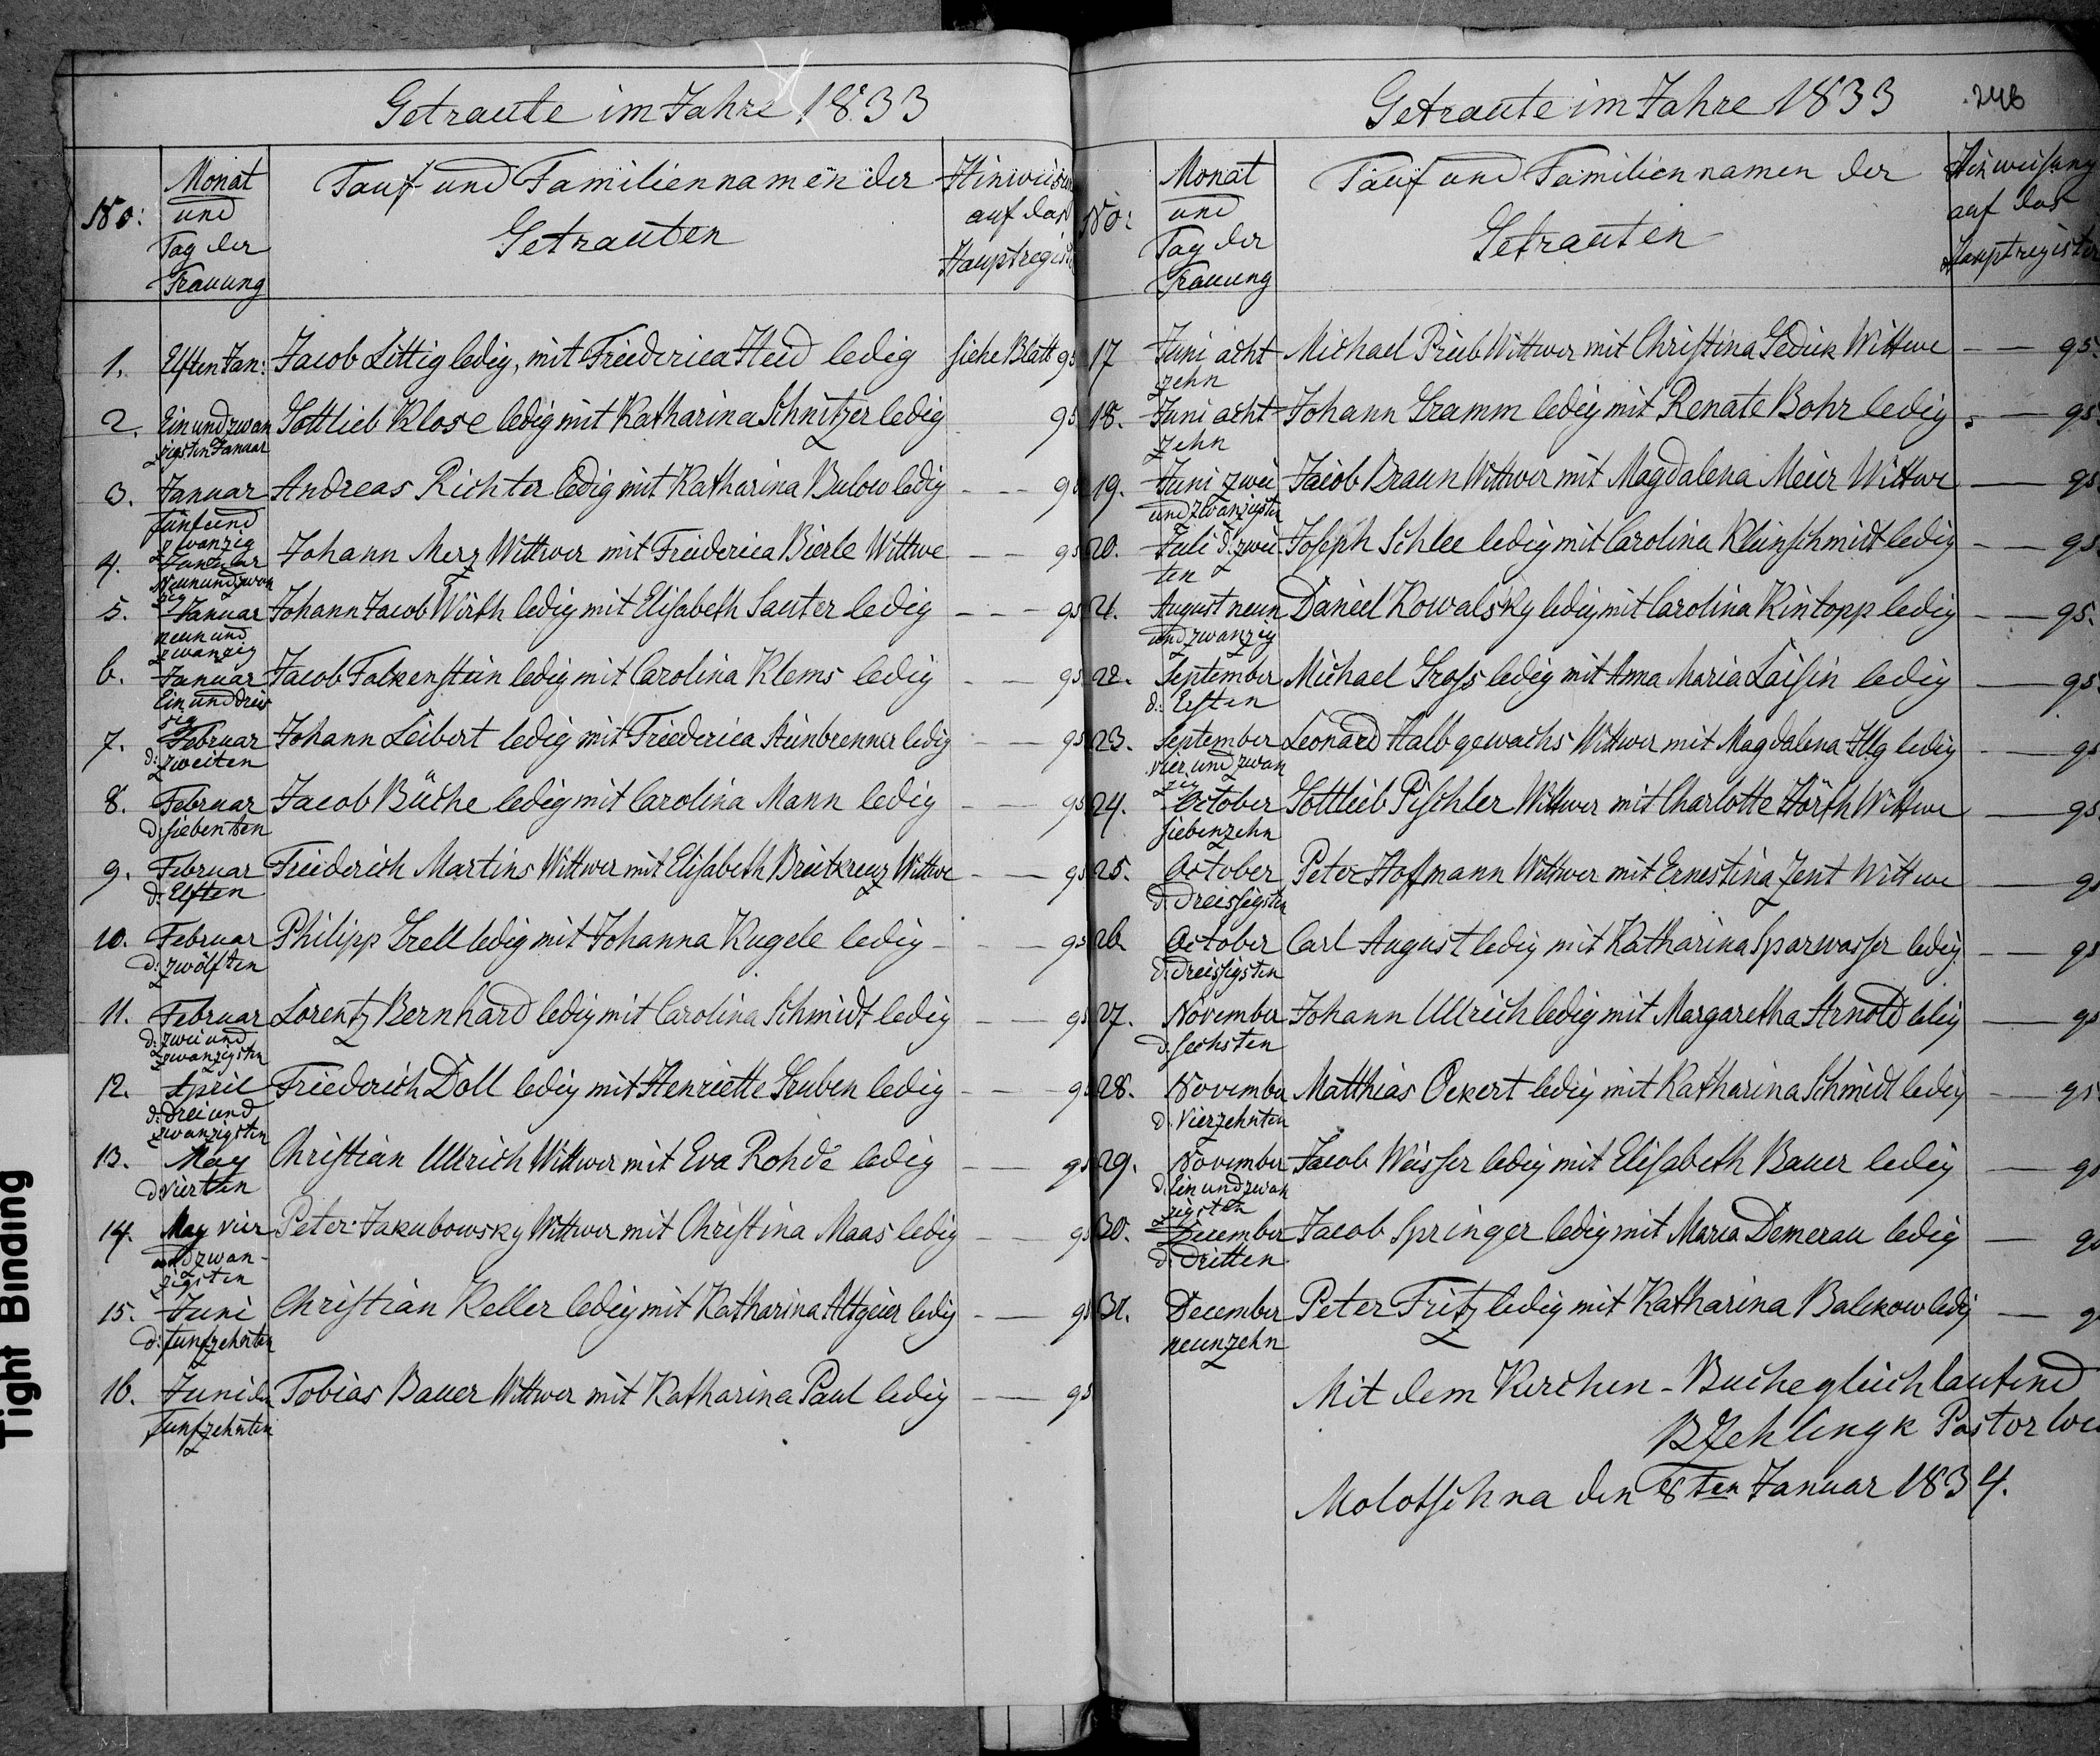 Getraute im Jahre 1833
No:
Monat
und
Tag der
Trauung
Tauf- und Familiennamen der
Getrauten
auf das
1. Elften Jan: Jacob Littig ledig, mit Friederica Heed ledig siehe Blatt 95
2. Ein und zwan Gottlieb Klose ledig mit Katharina Schnitzer ledig 95
zigsten Januar
3. Januar Andreas Richter ledig mit Katharina Bulow ledig - - - 9
fünf und
zwanzig
4. Januar Johann Merz Wittwer mit Friederica Bierle Wittwe - - 95
Neunundzwan
zig
5. Januar Johann Jacob Wirth ledig mit Elisabeth Sauter ledig - - - 95
neun und
zwanzig
6. Januar Jacob Falkenstein ledig mit Carolina Klems ledig - - 95
Ein und dreis
sig
7. Februar Johann Leibert ledig mit Friederica Steinbrenner ledig - - 95
d: zweiten
8. Februar Jacob Büche ledig mit Carolina Mann ledig - - 95
d: siebenten
9. Februar Friederich Martins Wittwer mit Elisabeth Breitkreuz Wittwe - - 95
d: Elften
10. Februar Philipp Grell ledig mit Johanna Kugele ledig - - - 95
d: zwölften
11. Februar Lorentz Bernhard ledig mit Carolina Schmidt ledig - - 95
d: zwei und
zwanzigsten
12. April Friederich Doll ledig mit Henriette Gruben ledig - - 9
d: drei und
zwanzigsten
13. May Christian Ullrich Wittwer mit Eva Rohde ledig - - 95
d: vierten
14. May vier Peter Jakubowsky Wittwer mit Christina Maas ledig - - 95
und zwan-
zigsten
15. Juni Christian Keller ledig mit Katharina Altgeier ledig - - 95
d: funfzehnten
16. Juni den Tobias Bauer Wittwer mit Katharina Paul ledig - - 95
funfzehnten
Getraute im Jahre 1833 246
No:
Monat
und
Tag der
Trauung
Tauf und Familien namen der
Getrauten
Hinweisung
auf das
Hauptregister
17 Juni acht Michael Prieb Wittwer mit Christina Gedick Wittwe - - 95
zehn
18. Juni acht Johann Gramm ledig mit Renate Bohr ledig - - 95
zehn
19. Juni zwei Jacob Braun Wittwer mit Magdalena Meier Wittwe - 95
und zwanzigsten
20. Juli d: zwei Joseph Schlee ledig mit Carolina Kleinschmidt ledig - - 95
ten
21. August neun Daniel Kowalsky ledig mit Carolina Kintopp ledig - - 95.
und zwanzig
22. September Michael Gross ledig mit Anna Maria Laisin ledig - 95
d: Ersten
23. September Leonard Halbgewachs Wittwer mit Magdalena Illg ledig - 95
vier und zwan
zig
24. October Gottlieb Pischler Wittwer mit Charlotte Hörth Wittwe - 95.
siebenzehn
25. October Peter Hoffmann Wittwer mit Ernestina Zent Wittwe - 95
d: dreissigsten
26. October Carl August ledig mit Katharina Sparwasser ledig - - 95
d: dreissigsten
27. November Johann Ullrich ledig mit Margaretha Arnold ledig - 95
d: sechsten
28. November Matthias Oekert ledig mit Katharina Schmidt ledig - - 95
d. Vierzehnten
29. November Jacob Weisser ledig mit Elisabeth Bauer ledig - 95
d. Ein und zwan
zigsten
30. December Jacob Springer ledig mit Maria Demerau ledig - 95
d: dritten
31. December Peter Fritz ledig mit Katharina Balckow ledig - 9
neunzehn
Mit dem Kirchen-Buche gleichlautend
Pastor
Molotschna den 8ten Januar 1834.
Tight Binding